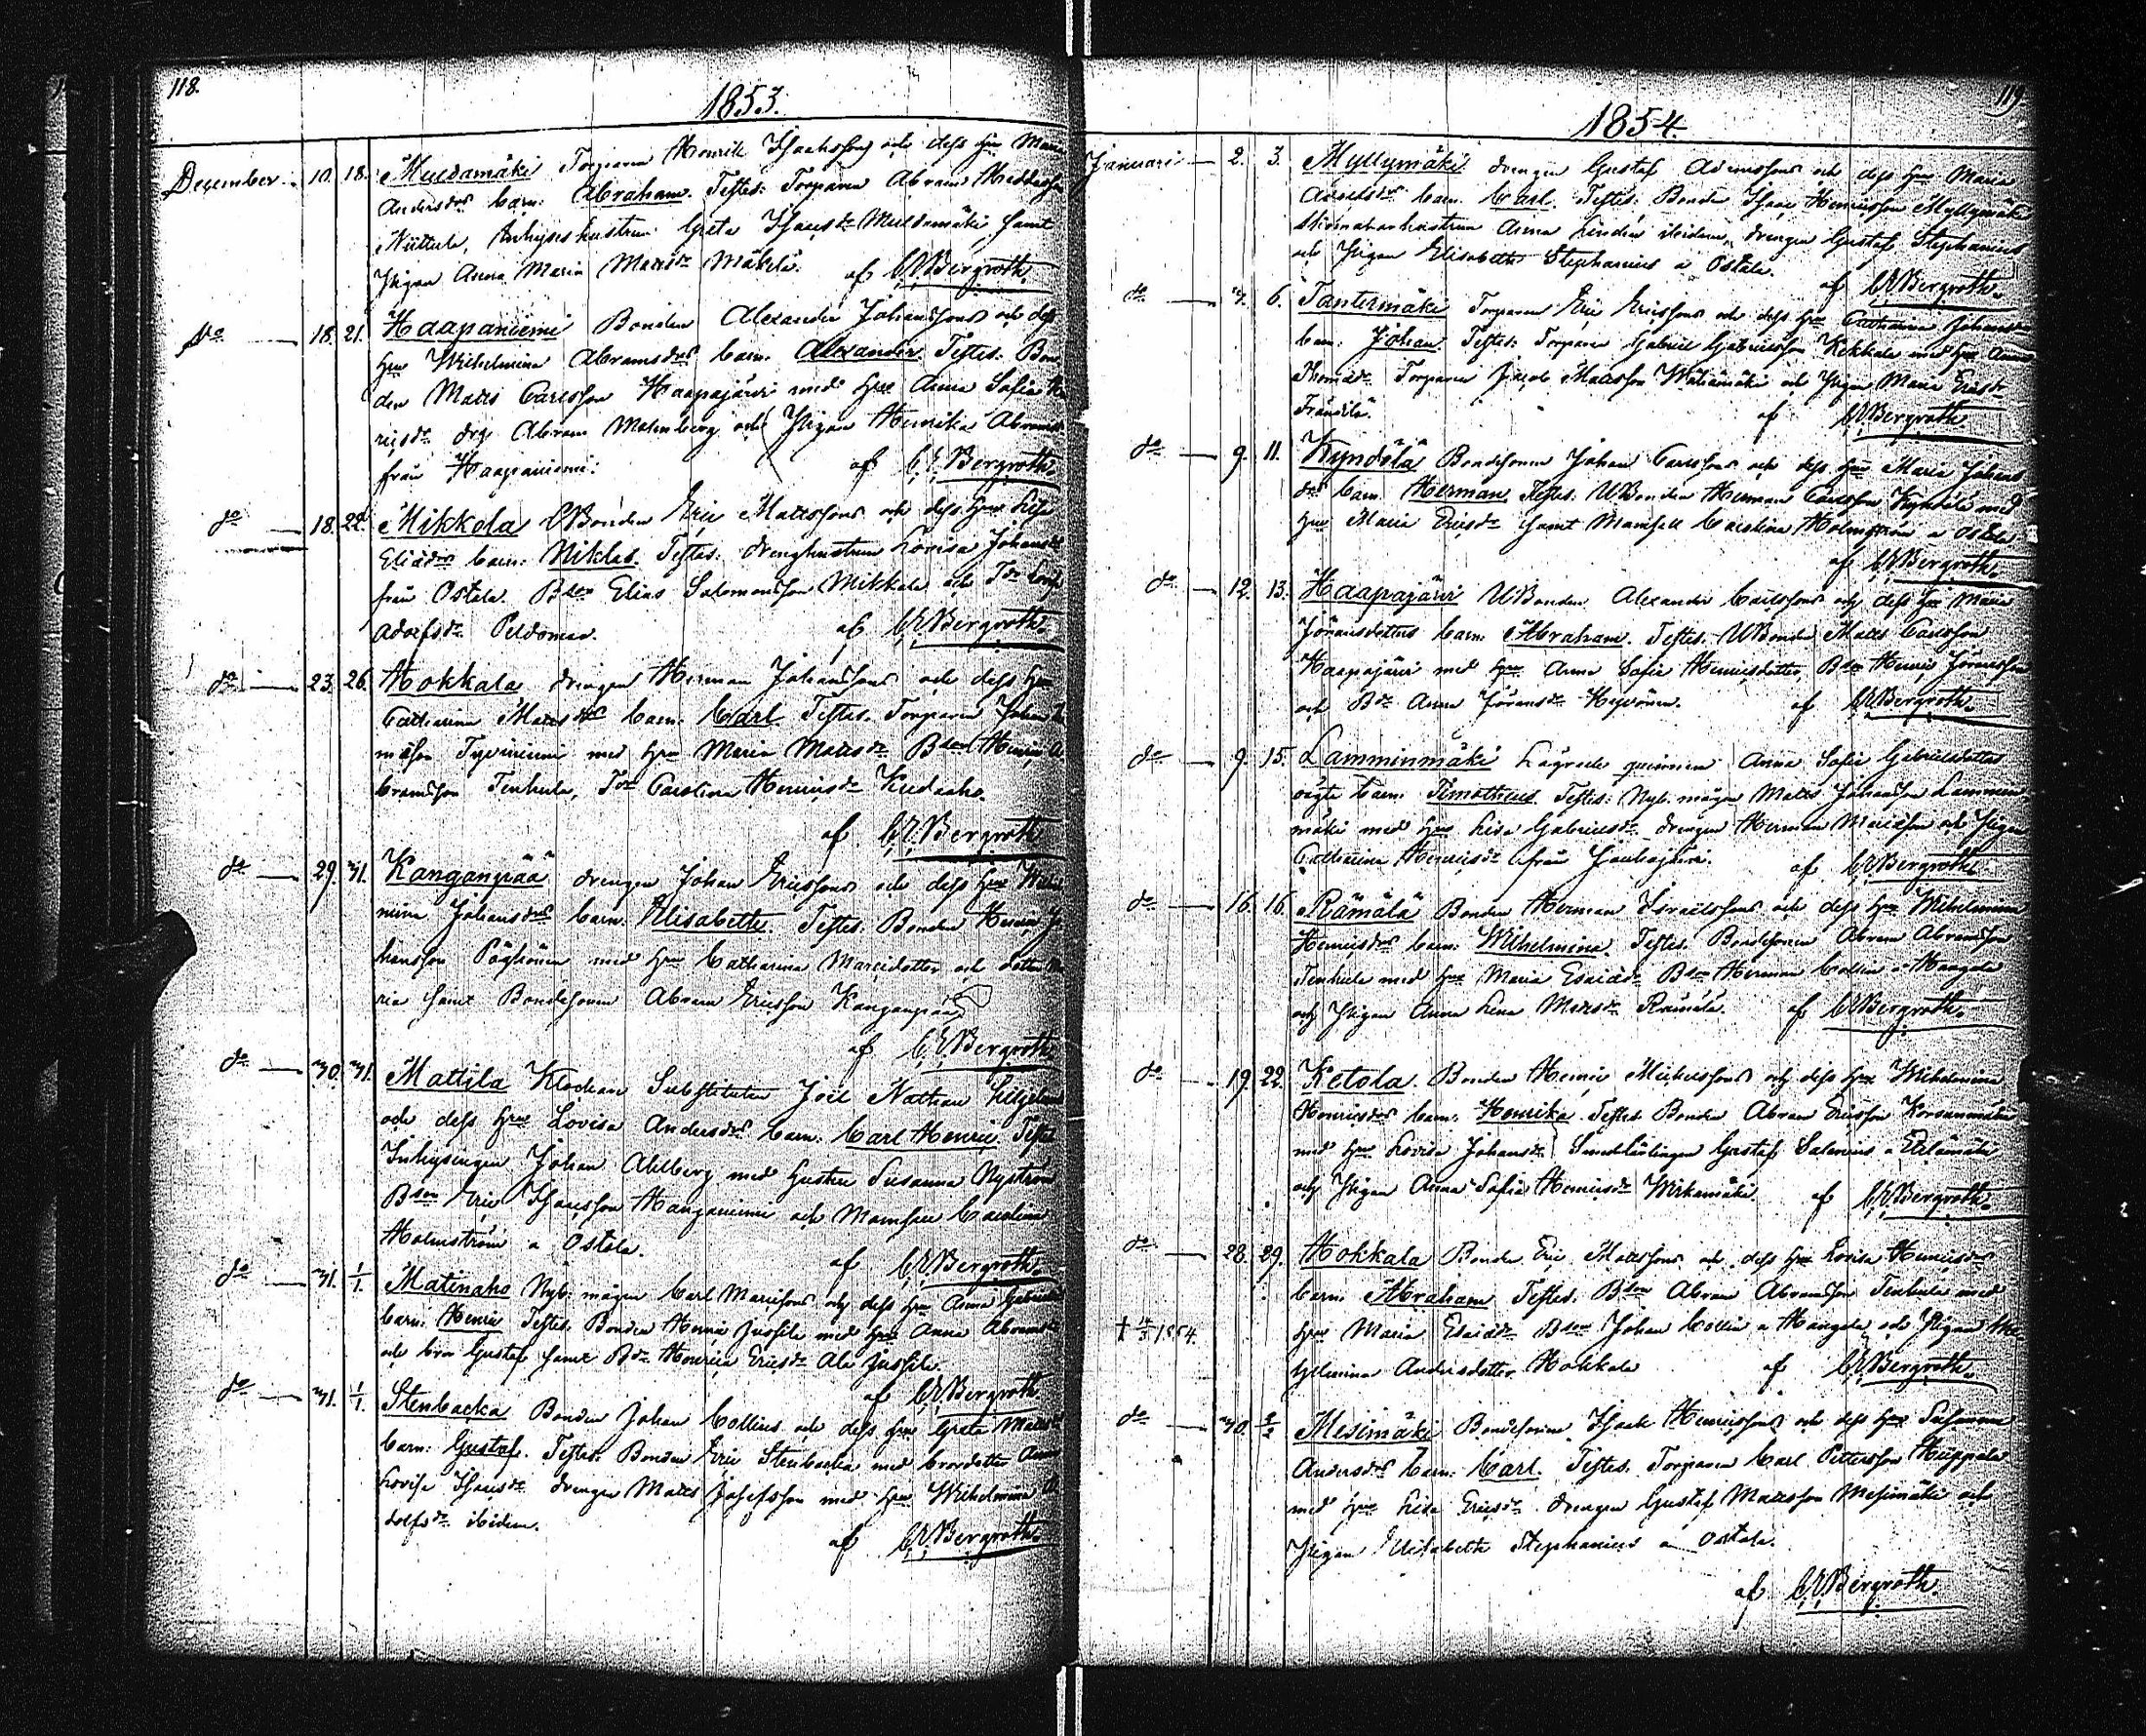 118.
1853.
December. 10. 18. Muldamäki Torparen Henrik Isaaksson och dess Hru Maria
Andersdrs barn: Abraham. Testes: Torparen Abram
Inhyseshustrun Greta Isacsdr Muldamäki samt
Pigan Anna Maria Matsdr Mäkelä. af C.E. Bergroth.
do 18. 21. Haapaniemi Bonden Alexander Johanssons och dess
Hru Wilhelmina Abramsdrs barn: Alexander. Testes: Bon
den Matts Carlsson Haapajärvi med Hru Anna Sofia
ricsdr drg Abram Malmberg och Pigan Henrika Abramsdr
från Haapaniemi. af C.E. Bergroth.
do 18. 22. Mikkola Bonden Eric Mattssons och dess Hru Lisa
Eliædrs barn: Niklas. Testes: drenghustrun Lovisa Johansdr
från Ostola. Bson Elias Salomonsson Mikkola och
Adolfsdr Peldomaa. af C.E. Bergroth.
do 23. 26. Hokkala drengen Herman Johanssons och dess Hru
Catharina Mattsdrs barn: Carl. Testes: Torparen Johan
med Hru Maria Mattsdr Bson Henric A
bramsson Tenhula, Carolina Henricsdr
af C.E. Bergroth
do 29. 31. Kanganpää drengen Johan Ericssons och dess Hru Wilhel
mina Johansdrs barn: Elisabeth. Testes: Bonden Henric Jo
hansson Pöyhönen med Hru Catharina Marcidotter och dotter Ma
ria samt Bondesonen Abram Ericsson Kanganpää
af C.E. Bergroth
do 30. 31. Mattila Klockare Substituten Joel Nathan
och dess Hru Lovisa Andersdrs barn: Carl Henric. Testes
Inhysingen Johan Ahlberg med hustru Susanna Nyström
Bson Eric Isacsson Hanganiemi och Mamsell Carolina
Holmström a Ostola. af C.E. Bergroth.
do 31. 1/1. Matinaho Nyb. mågen Carl Marcissons och dess Hru Anna
barn: Henric Testes: Bonden Henric Jussila med Hru Anna Abramsdr
och bror Gustaf samt Bdr Henrica Ericsdr Ala Jussila.
af C.E. Bergroth
do 31. 1/1. Stenbacka Bonden Johan Collins och dess Hru Greta Mattsdrs
barn: Gustaf. Testes: Bonden Eric Stenbacka med brordotter Anna
Lovisa Isacsdr drengen Matts Josefsson med Hru Wilhelmina A
dolfsdr ibidem. af C.E. Bergroth.
119.
1854.
Januari 2. 3. Myllymäki drengen Gustaf Adamssons och dess Hru Maria
barn: Carl. Testes: Bonden Isac Henricsson Myllymäki
Anna Lindén ibidem, drengen Gustaf Stephanius
och Pigan Elisabeth Stephanius a Ostola. af C.E. Bergroth.
do 3. 6. Tantermäki Torparen Eric Ericssons och dess Hru Catharina Johansdrs
barn: Johan. Testes: Torparen Gabriel Gabrielsson Kekkala med Hru Anna
Thomædr Torparen Jacob Mattsson och Pigan Maria Ericsdr
Fräntilä. af C.E. Bergroth
do 9. 11. Kyndölä Bondesonen Johan Carlssons och dess Hru Maria Johans
drs barn: Herman. Testes: UBonden Herman Carlsson Kyndölä med
Hru Maria Ericsdr samt Mamsell Carolina Holmström a Ostola
af C.E. Bergroth.
do 12. 13. Haapajärvi UBonden Alexander Carlssons och dess Hru Maria
Göransdotters barn: Abraham. Testes: UBonden Matts Carlsson
Haapajärvi med Hru Anna Sofia Henricsdotter, Bson Henric Göransson
och Bdr Anna Göransdr Hyvönen. af C.E. Bergroth.
do 9. 15. Lamminmäki Lägrade quinnan Anna Sofia Gabrielsdotters
oägta barn: Timotheus. Testes: Nyb. mågen Matts Johansson Lammin
mäki med Hru Lisa Gabrielsdr drengen Herman Marcisson och Pigan
Catharina Henricsdr från Jouhajärvi. af C.E. Bergroth.
do 16. 16. Rämälä Bonden Herman Israelssons och dess Hru Wilhelmina
Henricsdrs barn: Wilhelmina. Testes: Bondesonen Abram Abramsson
Tenhula med Hru Maria Esaiædr Bson Herman Collin a Hangala
och Pigan Anna Lena Mattsdr Rämälä. af C.E. Bergroth.
do 19. 22. Ketola. Bonden Henric Michelssons och dess Hru Wilhelmina
Henricsdrs barn: Henrika. Testes: Bonden Abram Ericsson
med Hru Lovisa Johansdr Smedlärlingen Gustaf Salenius a Etelämäki
och Pigan Anna Sofia Henricsdr Wirkamäki. af C.E. Bergroth.
do 28. 29. Hokkala Bonden Eric Mattssons och dess Hru Lovisa Henricsdrs
barn: Abraham Testes: Bson Abram Abramsson Tenhula med
† 4/3 1854. Hru Maria Esaiædr Bson Johan Collin a Hangala och Pigan
Andersdotter Hokkala af C.E. Bergroth.
do 30. 2/2 Mesimäki Bondesonen Isaak Henricssons och dess Hru Susanna
Andersdrs barn: Carl. Testes: Torparen Carl Pettersson Huppala
med Hru Lisa Ericsdr drengen Gustaf Mattsson Mesimäki och
Pigan Elisabeth Stephanius a Ostola.
af C.E. Bergroth.